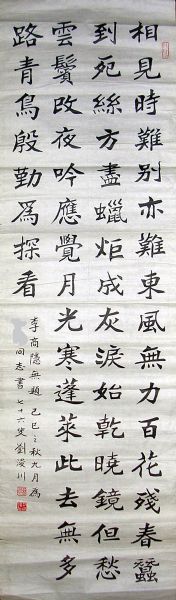 相見時難別亦難東風無力百花殘春蠶
到死絲方盡蠟炬成灰淚始乾曉鏡但愁
雲鬢改夜吟應覺月光寒蓬萊此去無多
路青鳥殷勤爲探看
李商隱無題 己巳之秋九月爲
同志書 七十六叟劉浚川